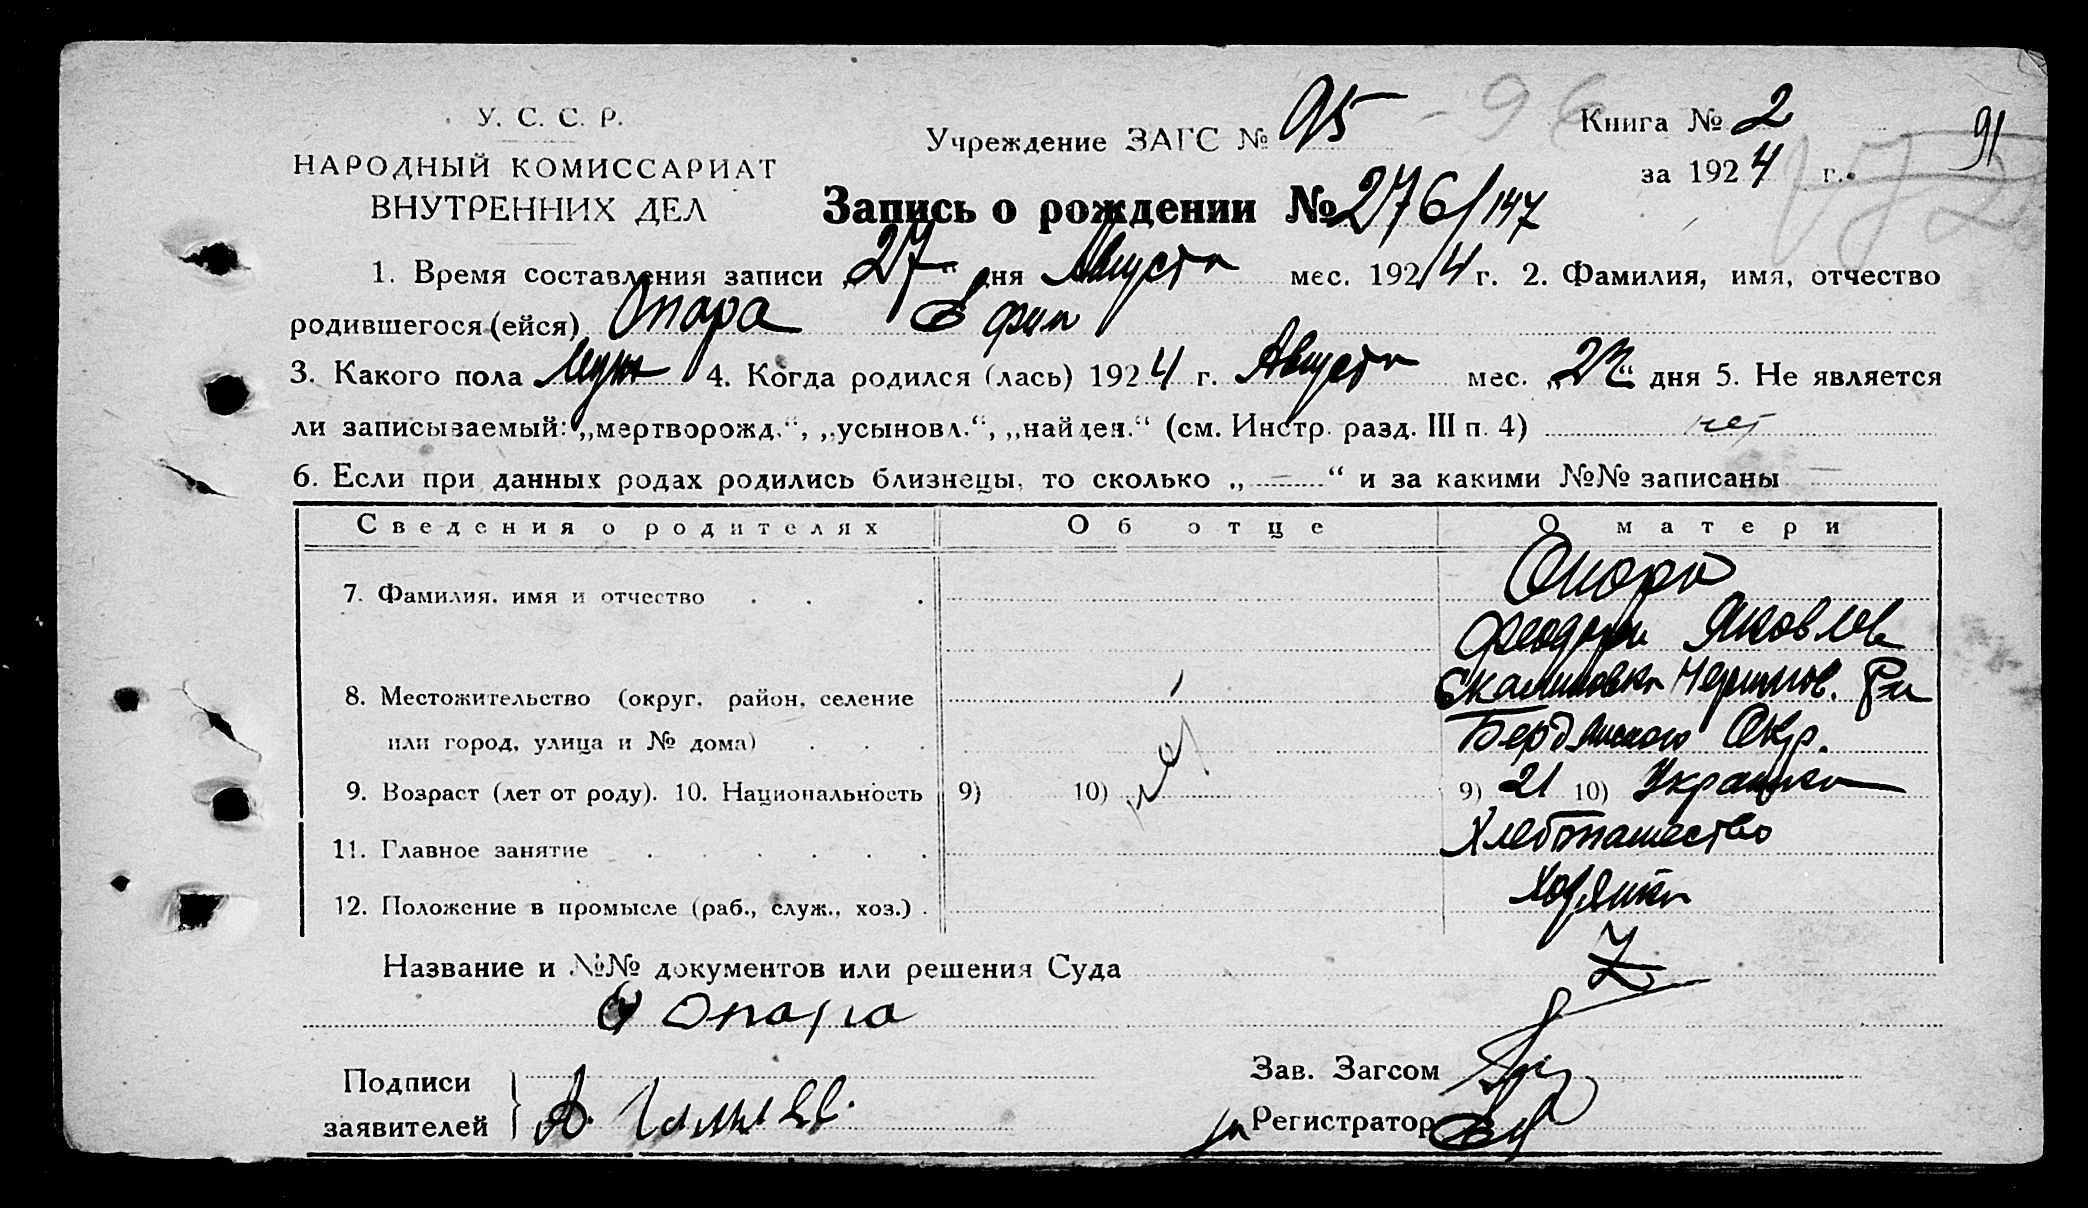 У. С. С. Р.
НАРОДНЫЙ КОМИССАРИАТ
ВНУТРЕННИХ ДЕЛ
Учреждение ЗАГС № 95 - 96
Книга № 2
за 1924 г.
91
Запись о рождении № 276/147
1. Время составления записи „27“ дня Августа мес. 1924 г. 2. Фамилия, имя, отчество
родившегося (ейся) Опара
3. Какого пола муж 4. Когда родился (лась) 1924 г. Августа мес. „23“ дня 5. Не является
ли записываемый: „мертворожд.“, „усыновл.“, „найден.“ (см. Инстр. разд. III п. 4) нет
6. Если при данных родах родились близнецы, то сколько „ “ и за какими №№ записаны
Сведения о родителях Об отце О матери
7. Фамилия, имя и отчество Опара
Яковлев
8. Местожительство (округ, район, селение
или город, улица и № дома) Бердянского Окр.
9. Возраст (лет от роду). 10. Национальность 9) 10) нет 9) 21 10) Украинка
11. Главное занятие Хлебопашество
12. Положение в промысле (раб., служ., хоз.) Хозяйка
Название и №№ документов или решения Суда
Опара
Подписи
заявителей
Зав. Загсом
Регистратор